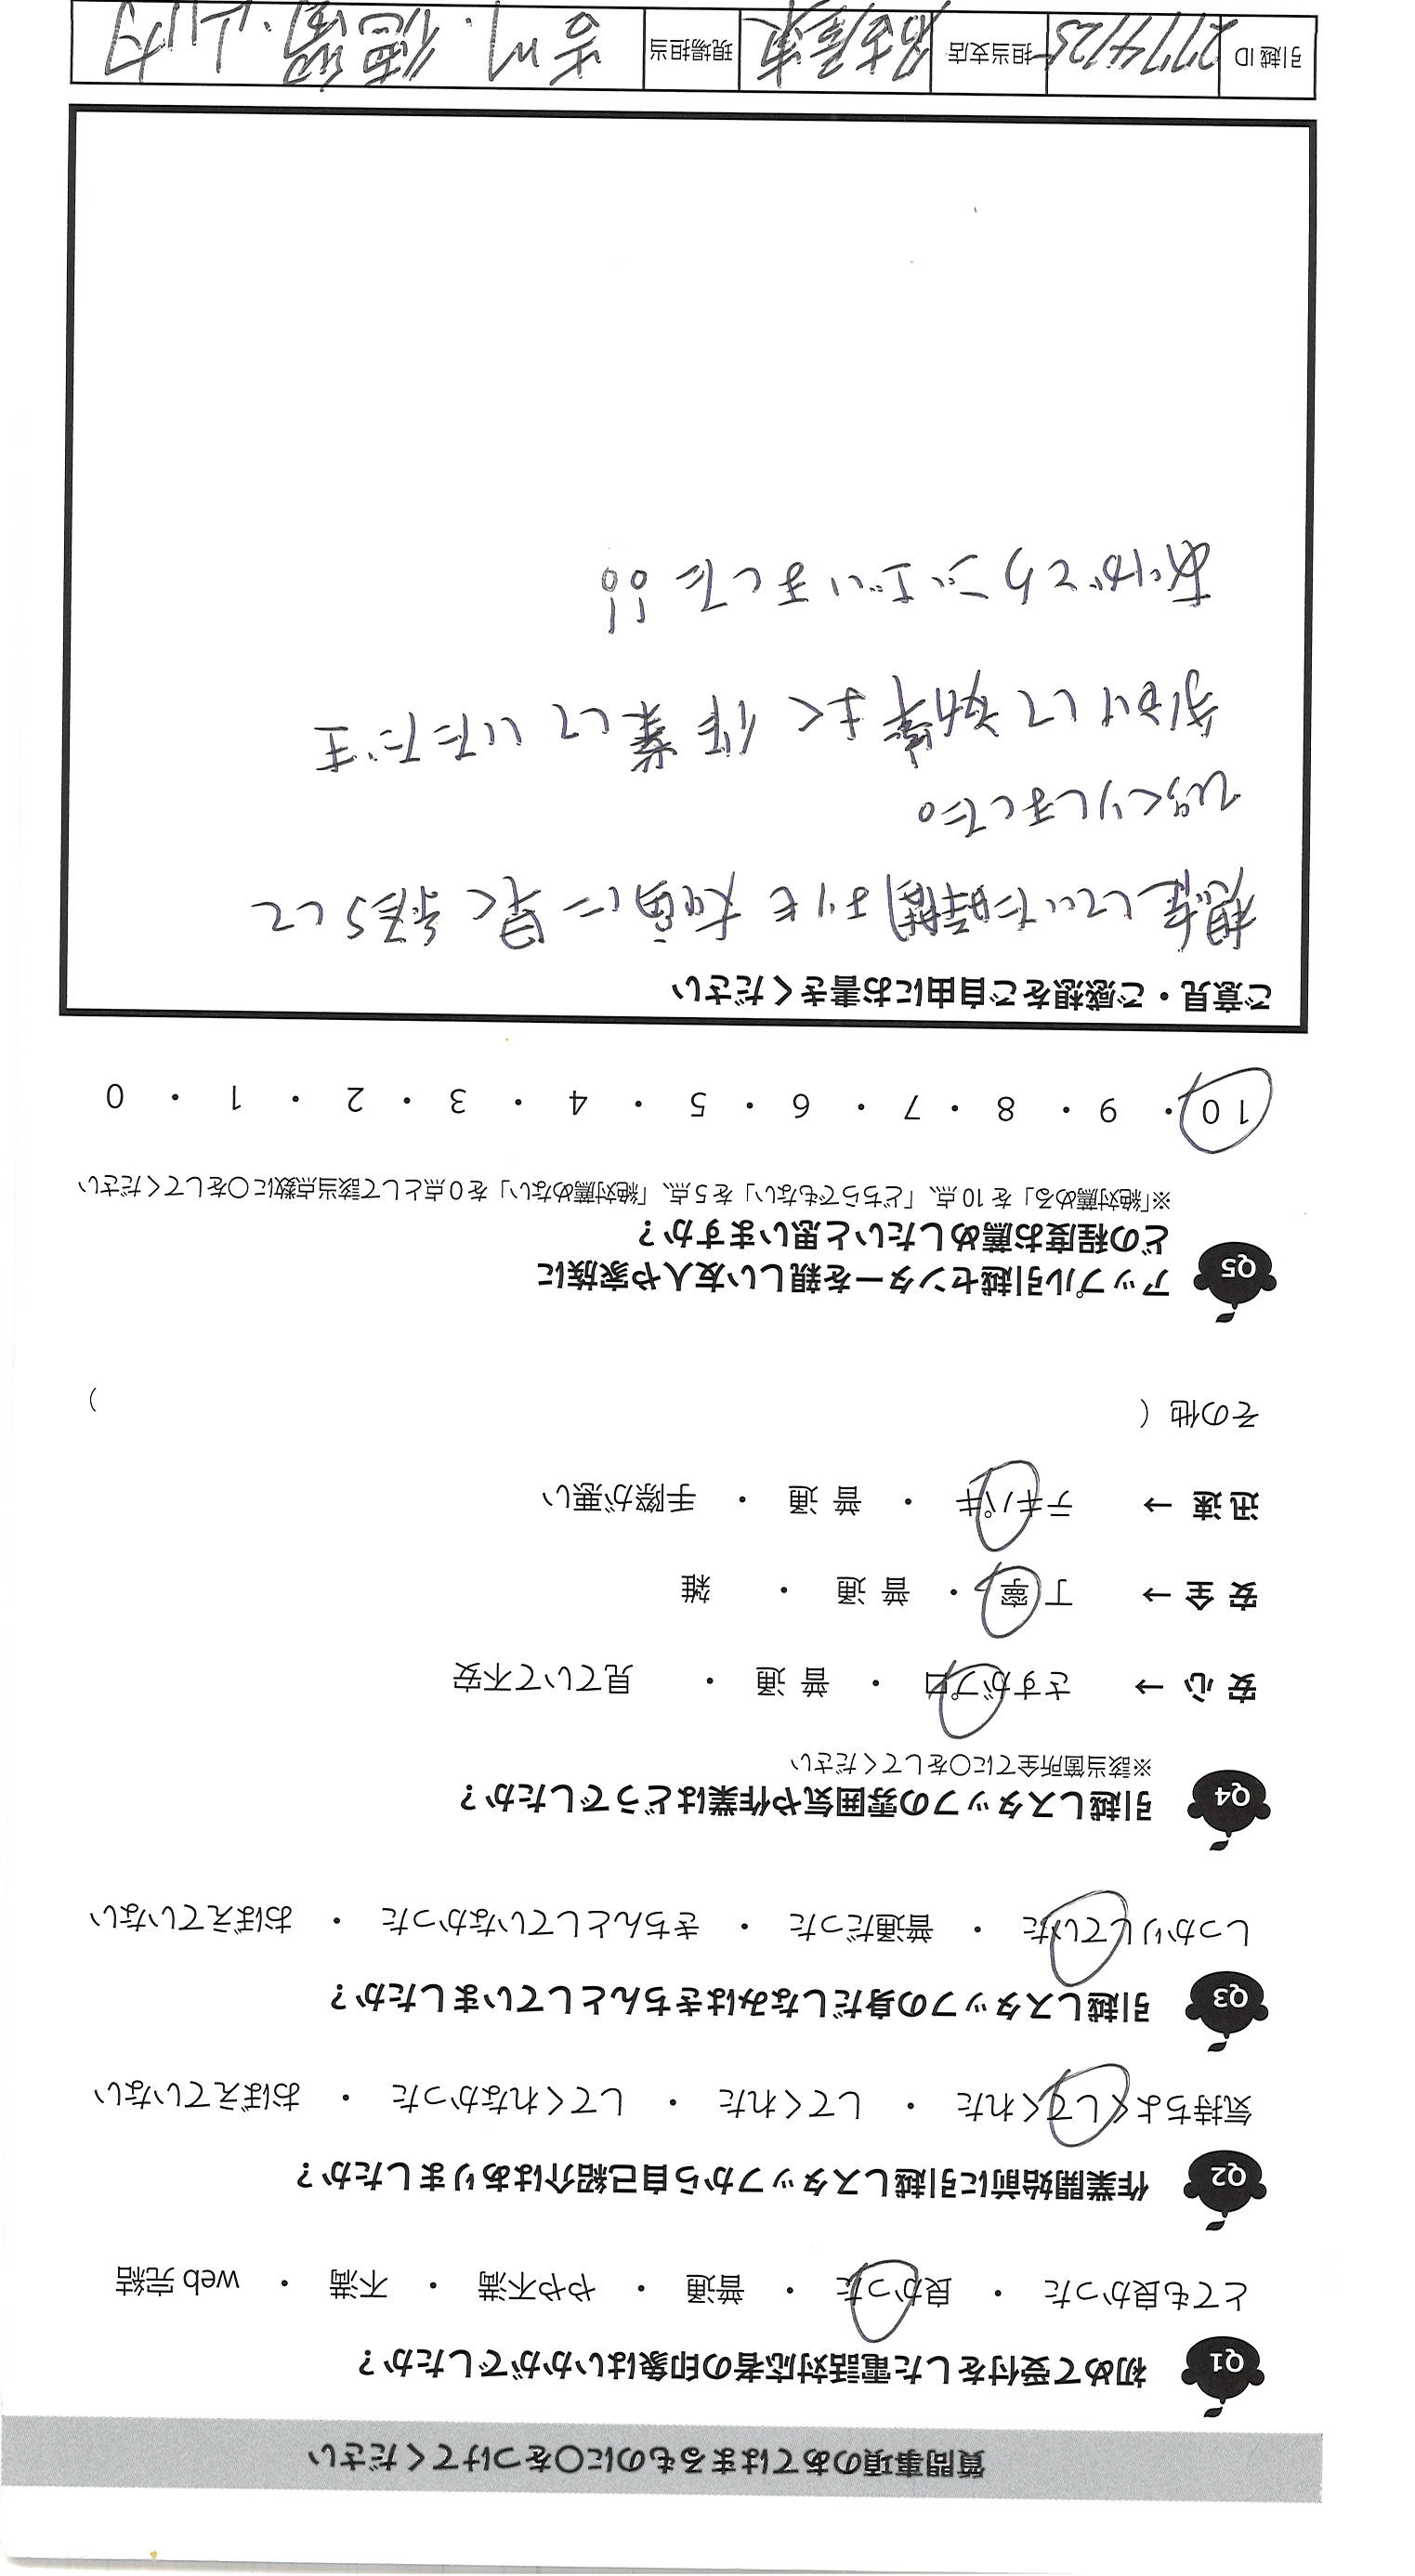 質問事項のあてはまるものに〇をつけてください
Q1 初めて受付をした電話対応者の印象はいかがでしたか？
とても良かった ・ 良かった ・ 普通 ・ やや不満 ・ 不満 ・ web 完結
Q2 作業開始前に引越しスタッフから自己紹介はありましたか？
気持ちよくしてくれた ・ してくれた ・ してくれなかった ・ おぼえていない
Q3 引越しスタッフの身だしなみはきちんとしていましたか？
しっかりしていた ・ 普通だった ・ きちんとしていなかった ・ おぼえていない
Q4 引越しスタッフの雰囲気や作業はどうでしたか？
※該当箇所全てに〇をしてください
安心 → さすがプロ ・ 普通 ・ 見ていて不安
安全 → 丁寧 ・ 普通 ・ 雑
迅速 → テキパキ ・ 普通 ・ 手際が悪い
その他（ ）
Q5 アップル引越センターを親しい友人や家族に
どの程度お薦めしたいと思いますか？
※「絶対薦める」を 10 点、「どちらでもない」を 5 点、「絶対薦めない」を 0 点として該当点数に〇をしてください
10 ・ 9 ・ 8 ・ 7 ・ 6 ・ 5 ・ 4 ・ 3 ・ 2 ・ 1 ・ 0
ご意見・ご感想をご自由にお書きください
想定していた時間よりも大幅に早く終らして
びっくりしました。
手分けして効率よく作業していただき
ありがとうございました!!
引越 ID 2774125 担当支店 名古屋東 現場担当 吉川・徳留・山内